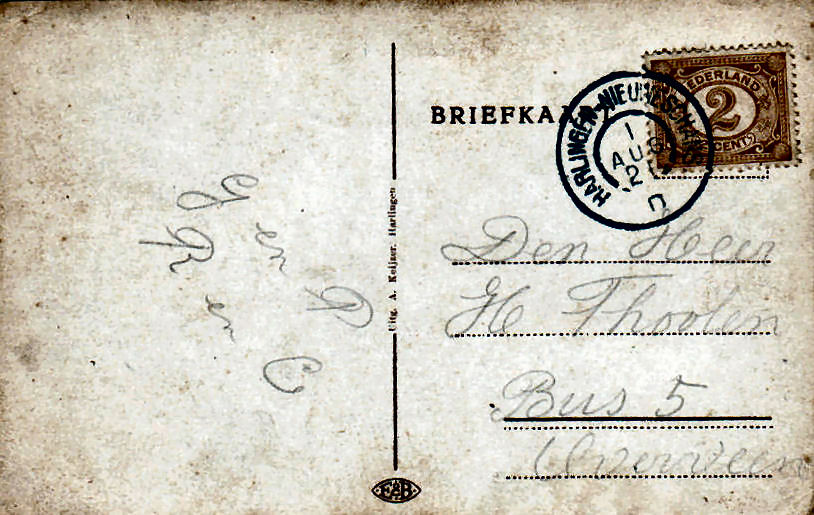 BRIEFKA
NEDERLAND
2
CENT
HARLINGEN-NIEUWESCHANS
1
AUG
2
Den Heer
H Thoolen
Bus 5
Overveen
Uitg. A. Keijzer, Harlingen
G en P
R en C
E&B